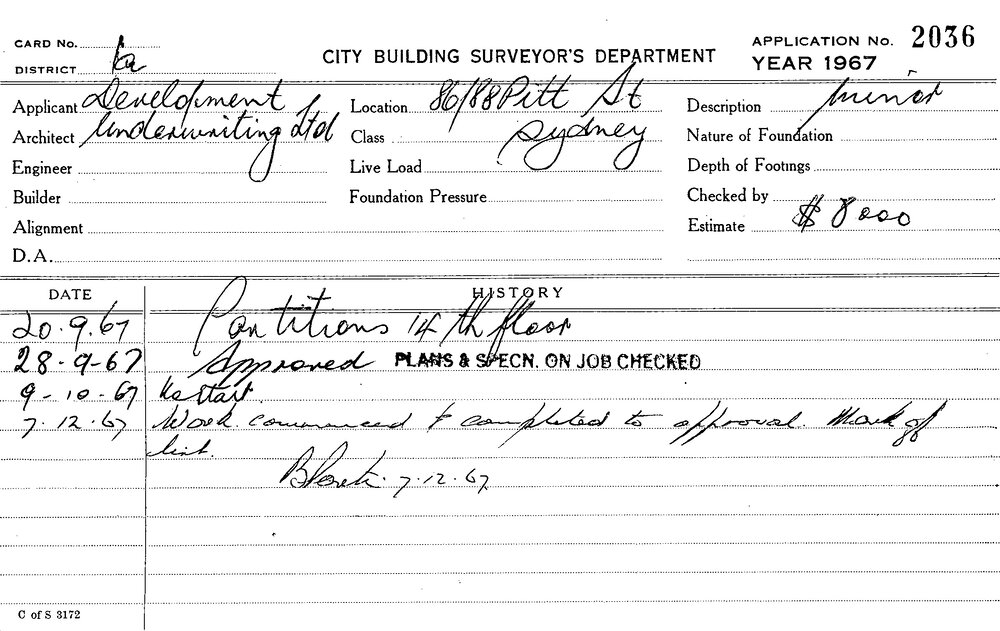 CARD No.
DISTRICT
CITY BUILDING SURVEYOR'S DEPARTMENT
APPLICATION No. 2036
YEAR 1967
Applicant Development
Location 86/88 Pitt St
Description minor
Architect Underwriting Ltd
Class Sydney
Nature of Foundation
Engineer
Live Load
Depth of Footings
Builder
Foundation Pressure
Checked by
Alignment
Estimate $ 8000
D.A.
DATE HISTORY
20.9.67 Partitions 14th floor
28-9-67 Approved PLANS & SPECN. ON JOB CHECKED
9-10-67 No start.
7.12.67 Work commenced & completed to approval. Mark off
list.
7.12.67
C of S 3172